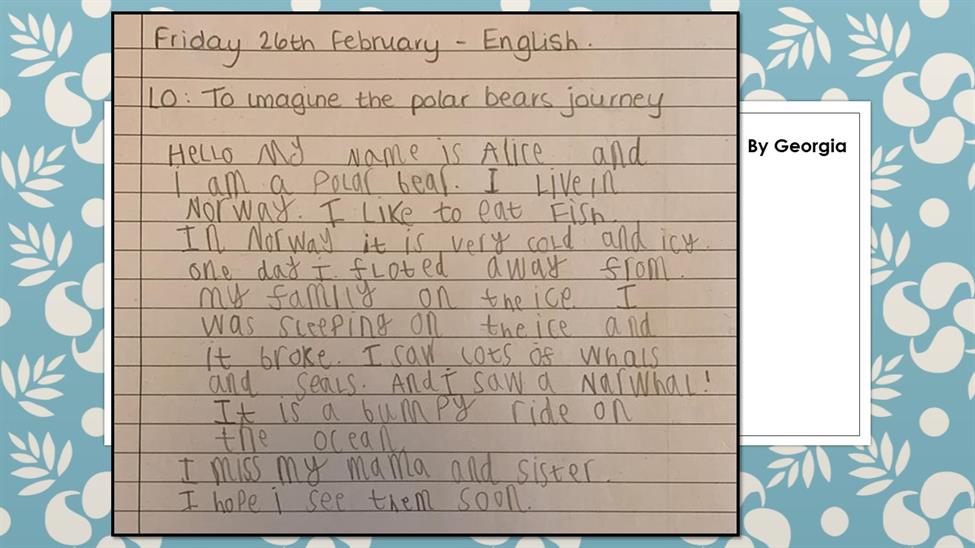 Friday 26th February - English.
LO: To imagine the polar bears journey
HeLLO My Name is Alice and
i am a POLAR bear. I Live in
NORWAY. I LiKe to eat Fish.
In NORWAY it is very cold and icy.
one day I floted away from
my family on the ice I
was sleeping on the ice and
it broke. I saw lots of whals
and seals. And I saw a NarWhal!
It is a bumpy ride on
the ocean
I miss my mama and sister.
I hope i see them soon.
By Georgia